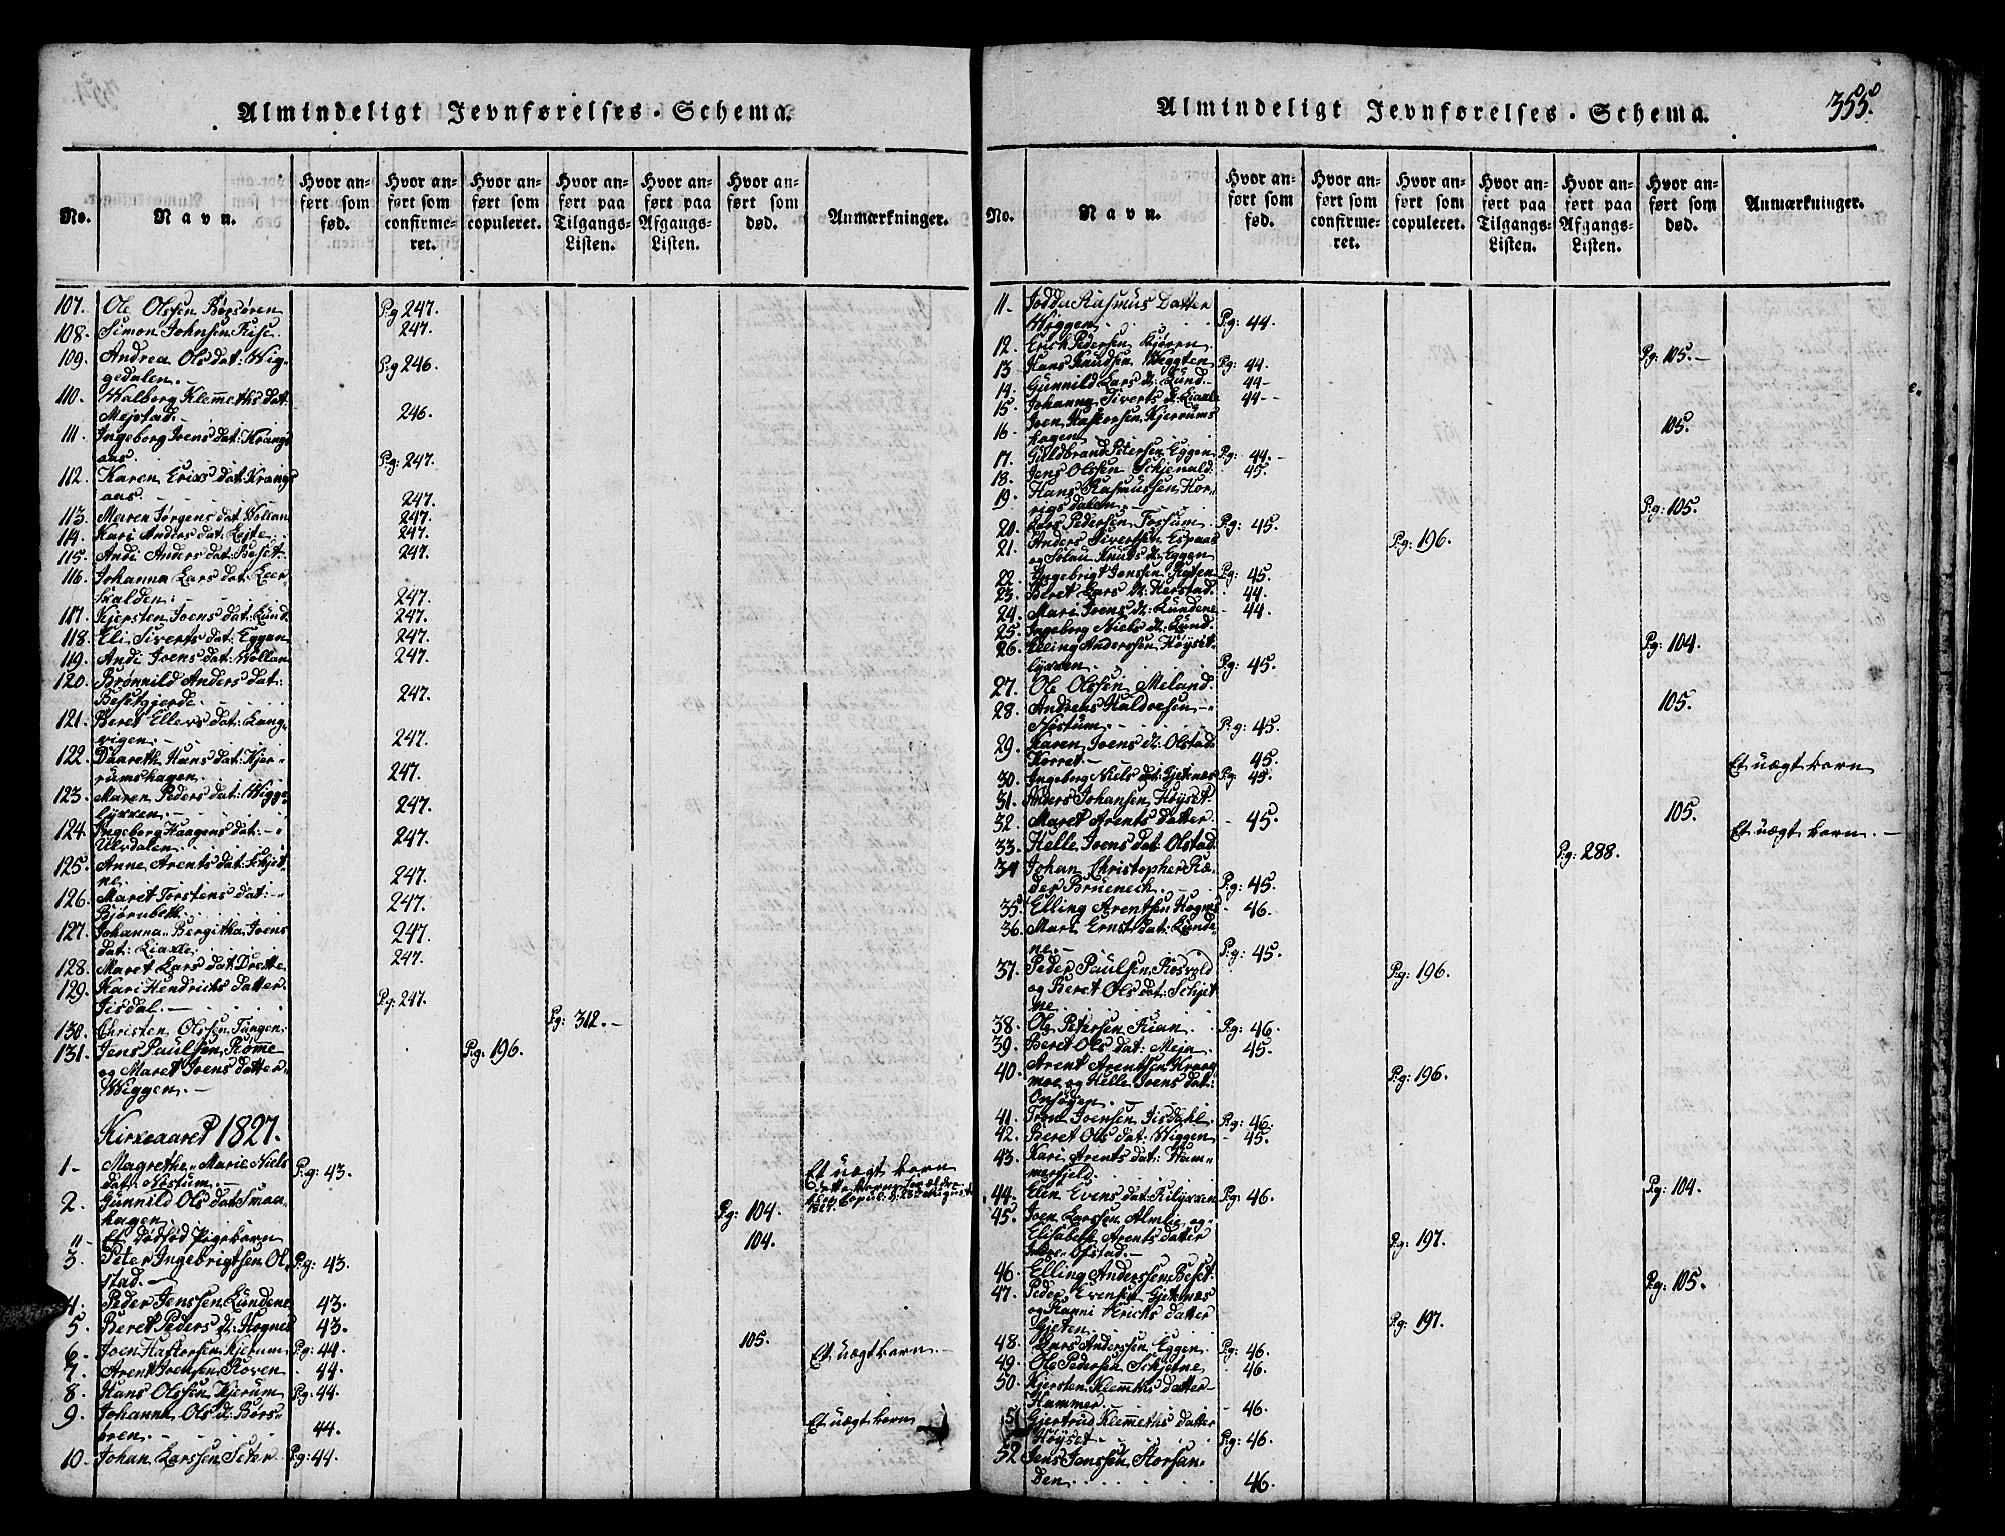 Almindeligt Jevnførelses-Schema.
No.
Navn.
Hvor anført som fød.
Hvor anført som confirmeret.
Hvor anført som copuleret.
Hvor anført paa Tilgangs-Listen.
Hvor anført paa Afgangs-Listen.
Hvor anført som død.
Anmærkninger.
107. Ole Olssen Børsøren Pg 247.
108. Simon Johnsen Rise 247.
109. Andrea Olsdat: Wig-
gedalen. Pg 246.
110. Walborg Klemeths dat:
Mejstad. 246.
111. Ingeborg Joens dat: Krangs
aas Pg: 247.
112. Karen Erixs dat: Krangs
aas. 247.
113. Maren Jørgens dat: Wollan 247.
114. Kari Anders dat: 247.
115. Andi Anders dat: Beset 247.
116. Johanna Lars dat: Leer-
skalden: 247.
117. Kjersten Joens dat: Lund. 247.
118. Eli Siverts dat: Eggen 247.
119. Andi Joens dat: Wollan 247.
120. Brønnild Anders dat:
Besetgjerde. 247.
121. Beret Ellevs dat: Lang-
vigen. 247.
122. Daareth Hans dat: Kjer-
rumshagen. 247.
123. Maren Peders dat: Wigge-
lyxxen. 247.
124. Ingeborg Haagens dat:
Ulvdalen. 247.
125. Anne Arents dat: Schjet-
ne. 247.
126. Maret Torstens dat:
Bjørnbeth. 247.
127. Johanna Bergitha Joens
dat: Liaxle. 247.
128. Maret Lars dat: Drette 247.
129. Kari Hendrichs datter
Jisdal. Pg: 247.
130. Christen Olssen Tangen. Pg: 312.
131. Jens Paulsen Rome Pg: 196.
og Maret Joens datter
Wiggen.
Kirkeaaret 1827.
1. Magrethe Marie Niels
dat: Pg: 43. Et uægt barn
2. Gunnild Ols dat: Smaa-
hagen Pg: 104.
" Et dødfød Pigebarn 104.
3. Peter Ingebrigtsen Ol-
stad. Pg: 43.
4. Peder Jenssen Lundene 43.
5. Beret Peders d: Hognes 43.
6. Joen Hastorsen Kjerum Pg: 44. 105. Et uægt barn
7. Arent Joensen Roven 44.
8. Hans Olssen Kjerum Pg: 44.
9. Johanna Ols d: Børs-
øren. 44. Et uægt barn
10. Johan Larssen Seter Pg: 44.
Almindeligt Jevnførelses-Schema.
355.
No.
Navn.
Hvor anført som fød.
Hvor anført som confirmeret.
Hvor anført som copuleret.
Hvor anført paa Tilgangs-Listen.
Hvor anført paa Afgangs-Listen.
Hvor anført som død.
Anmærkninger.
11. Rasmus Datter
Wiggen. Pg: 44.
12. Erich Pedersen Kjøren Pg: 105.
13. Hans Knudsen Weggten Pg: 44.
14. Gunnild Lars d: Lund. 44
15. Johanna Siverts d: Liaxle 44
16. Joen Hastorsen Kjerrums
hagen 105.
17. Guldbrand Petersen Eggen Pg: 44.
18. Jens Olssen Schjenald 45.
19. Hans Rasmussen Hor-
rigsdalen. Pg: 105.
20. Lars Pedersen Fossum Pg: 45.
21. Anders Siversen Espaas Pg: 196.
og Knuds d: Eggen
22. Ingebrigt Jenssen Gjeten Pg: 45.
23. Beret Lars d: Herstad. 44.
24. Mari Joens d: Lundene 44.
25. Ingeborg Niels d: Lund. Pg: 104.
26. Elling Anderssen Høyset-
lyxxen. Pg: 45.
27. Ole Olssen Meland. 105.
28. Andreas Haldorsen Pg: 45.
29. Karen Joens d: Olstad
Korret. 45. Et uægt barn
30. Ingeborg Niels dat: Gjetnæs Pg: 45.
31. Anders Johansen Høyset. 105.
32. Maret Arents datter 45. Et uægt barn.
33. Helle Joens dat: Olstad Pg: 288.
34 Johan Christopher Ræ-
der Bruenech. Pg: 45.
35. Elling Arentsen Hognes 46.
36. Mari Ernst dat: Lunde-
ne. Pg: 45.
37. Peder Paulsen Rosvold Pg: 196.
og Beret Ols dat: Schjet
ne
38. Ole Petersen Rian Pg: 46.
39. Beret Ols dat: Meja 45.
40. Arent Arentsen Kraag-
moe og Helle Joens dat: Pg: 196.
Onsøgen.
41. Tron Joensen Jisdahl Pg: 46.
42. Beret Ols dat: Wiggen 45.
43. Kari Arents dat: Ham-
merfjeld. Pg: 104.
44. Elen Evens dat: Rilyxxen Pg: 46.
45. Joen Larssen Almlie og
Elisabeth Arents datter Pg: 197.
Ofstad.
46. Elling Anderssen Beset Pg: 105.
47. Peder Evensen Gjetnæs
og Ranni Erichs datter Pg: 197.
Gjeten.
48. Lars Anderssen Eggen. Pg: 46.
49. Ole Pedersen Schjetne 46.
50. Kjersten Klemeths datter
Hammer. 46.
51. Gjertrud Klemeths datter
Høyset Pg: 46.
52 Jens Jenssen Storsan-
den. 46.